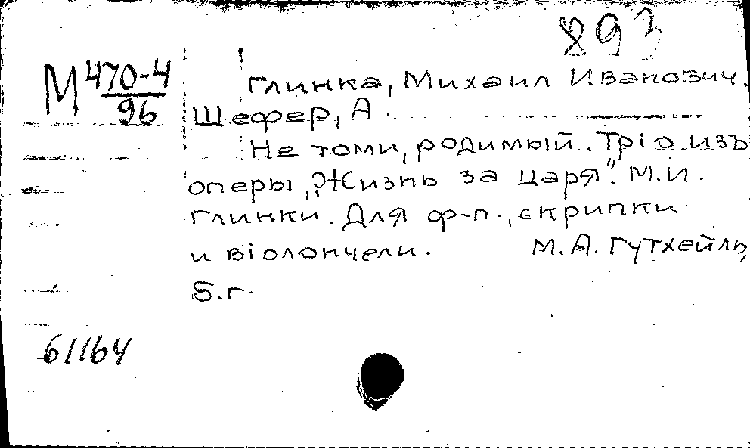 893
М 470-4
96
Глинка, Михаил Иванович.
Шефер, А.
Не томи, родимый. Трiо изъ
оперы „Жизнь за царя". М.И.
Глинки. Для ф-п., скрипки
и вiолончели. М. А. Гутхейль,
Б.г.
61164